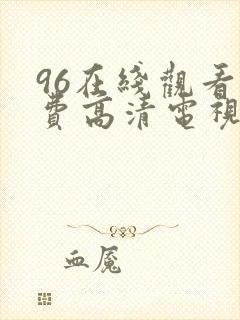 96在綫觀看
費高清電視
血魘